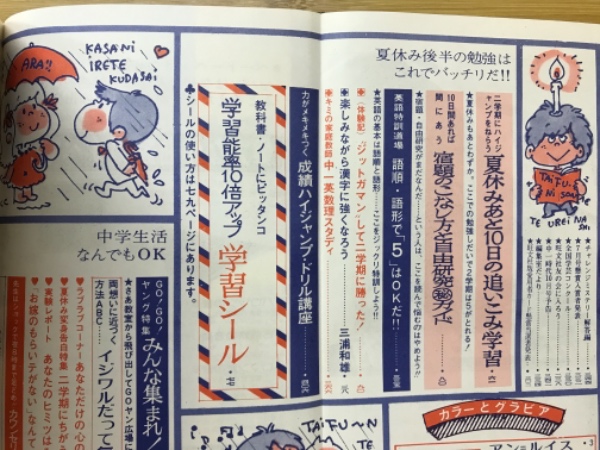 夏休み後半の勉強は
これでバッチリだ!!
二学期にハイジ
ャンプをねらう
夏休みあと10日の追いこみ学習
★夏休みもあとわずか。ここでの勉強しだいで2学期は差がとれる!
10日間あれば
間にあう
宿題のこなし方と自由研究㊙ガイド
★宿題・自由研究がまだなんだ……という人は、ここを読んで悩むのはやめよう!!
英語特訓道場
語順・語形で「5」はOKだ!!
★英語の基本は語順と語形……ここをジックリ特訓しよう!!
〈体験記〉“ジットガマン”して二学期に勝った!
楽しみながら漢字に強くなろう
三浦和雄
キミの家庭教師
中一英数理スタディ
力がメキメキつく
成績ハイジャンプ・ドリル講座
教科書・ノートにピッタンコ
学習能率10倍アップ
学習シール
♣シールの使い方は七九ページにあります。
KASA NI
IRETE
KUDASAI
ARA!!
TAIFU・
NI sonae
TE UREI NA
SHI
★チャレンジミステリー解答編
★7月号懸賞入選者発表
★全国学芸コンクール
★旺文社友の会に入ろう
★中一時代10月号予告
★編集室だより
中学生活
なんでもOK
GO!GO!
ヤング特集
みんな集まれ!
★さあ教室から飛び出してGOヤン広場に
両想いに近づく
方法ABC……
イジワルだって
♥ラブラブコーナー
あなただけの心の
♥夏休み変身告白特集
二学期にちが
♥実験レポート
あなたのヒミツは
♥“お嫁のもらい手がない”なんて
カラーとグラビア
アン=ルイス
・3
TAiFU〜N
TE